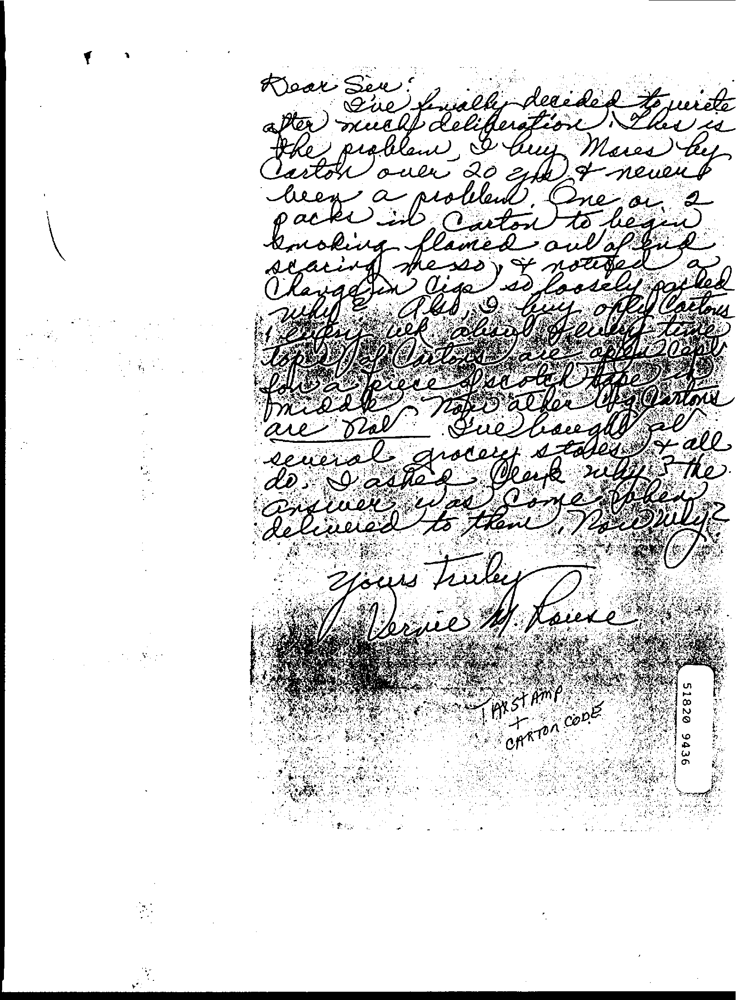 Dear Ser:
I've finally decided to write
after much deliberation. This is
the problem, I buy Mores by
Carton over 20 yrs & never
been a problem. One or 2
packs in Carton to begin
smoking flamed out of end
scaring messo, & noticed a
Change in Cigs so loosely packed
why? Also, I buy only Cartons
I every time
tops of Cartons are open
for a piece of scotch tape in
middle. Now other Cartons
are not I've bought at
several grocery stores & all
do. I asked Clerk why? the
answer was Come when
delivered to them, Now why?
Yours Truly
Vernie M Rouse
TAXSTAMP
+
CARTON CODE
51820 9436